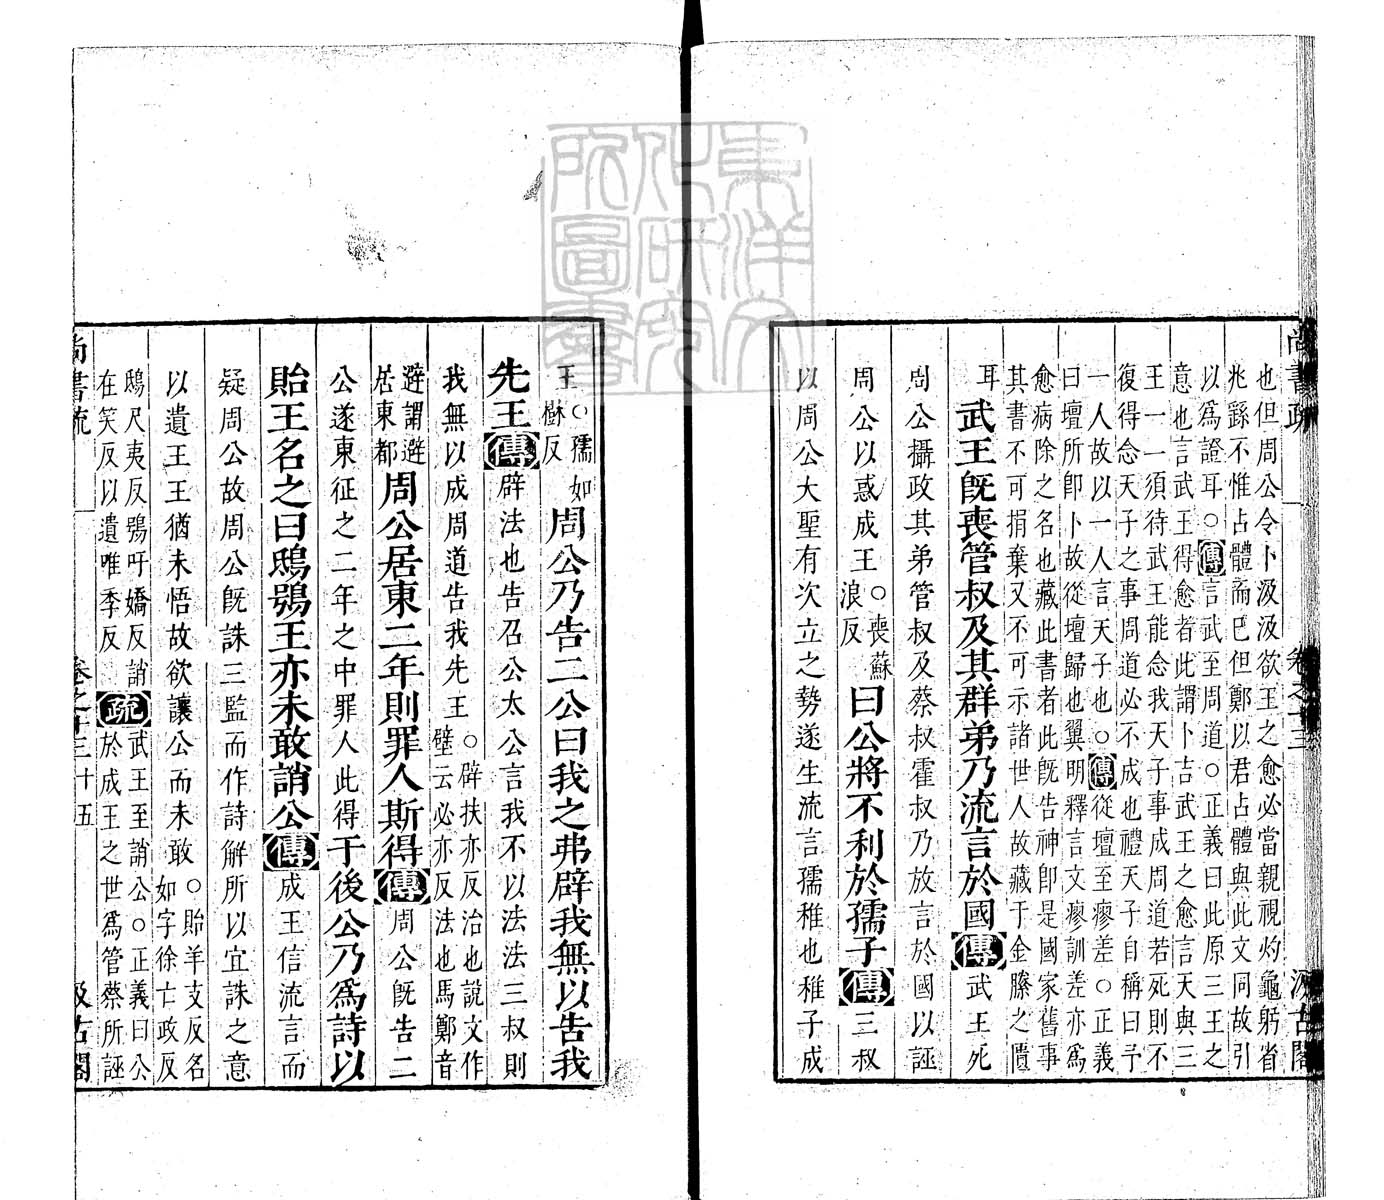 尚書疏 卷之十三 汲古閣
也但周公令卜汲汲欲王之愈必當親視灼龜躬省
兆繇不惟占體而已但鄭以君占體與此文同故引
以爲證耳○傳言武至周道○正義曰此原三王之
意也言武王得愈者此謂卜吉武王之愈言天與三
王一一須待武王能念我天子事成周道若死則不
復得念天子之事周道必不成也禮天子自稱曰予
一人故以一人言天子也○傳從壇至瘳差○正義
曰壇所即卜故從壇歸也翼明釋言文瘳訓差亦爲
愈病除之名也藏此書者此旣告神即是國家舊事
其書不可捐棄又不可示諸世人故藏于金縢之匱
耳
武王旣喪管叔及其群弟乃流言於國傳武王死
周公攝政其弟管叔及蔡叔霍叔乃放言於國以誣
周公以惑成王○喪蘇浪反曰公將不利於孺子傳三叔
以周公大聖有次立之勢遂生流言孺稚也稚子成
王○孺如樹反周公乃告二公曰我之弗辟我無以告我
先王傳辟法也告召公太公言我不以法法三叔則
我無以成周道告我先王○辟扶亦反治也說文作壁云必亦反法也馬鄭音
避謂避居東都周公居東二年則罪人斯得傳周公旣告二
公遂東征之二年之中罪人此得于後公乃爲詩以
貽王名之曰鴟鴞王亦未敢誚公傳成王信流言而
疑周公故周公旣誅三監而作詩解所以宜誅之意
以遺王王猶未悟故欲讓公而未敢○貽羊支反名如字徐亡政反
鴟尺夷反鴞吁嬌反誚在笑反以遺唯季反疏武王至誚公○正義曰公於成王之世爲管蔡所誣
尚書疏 卷之十三 十五 汲古閣
東洋文化研究所圖書